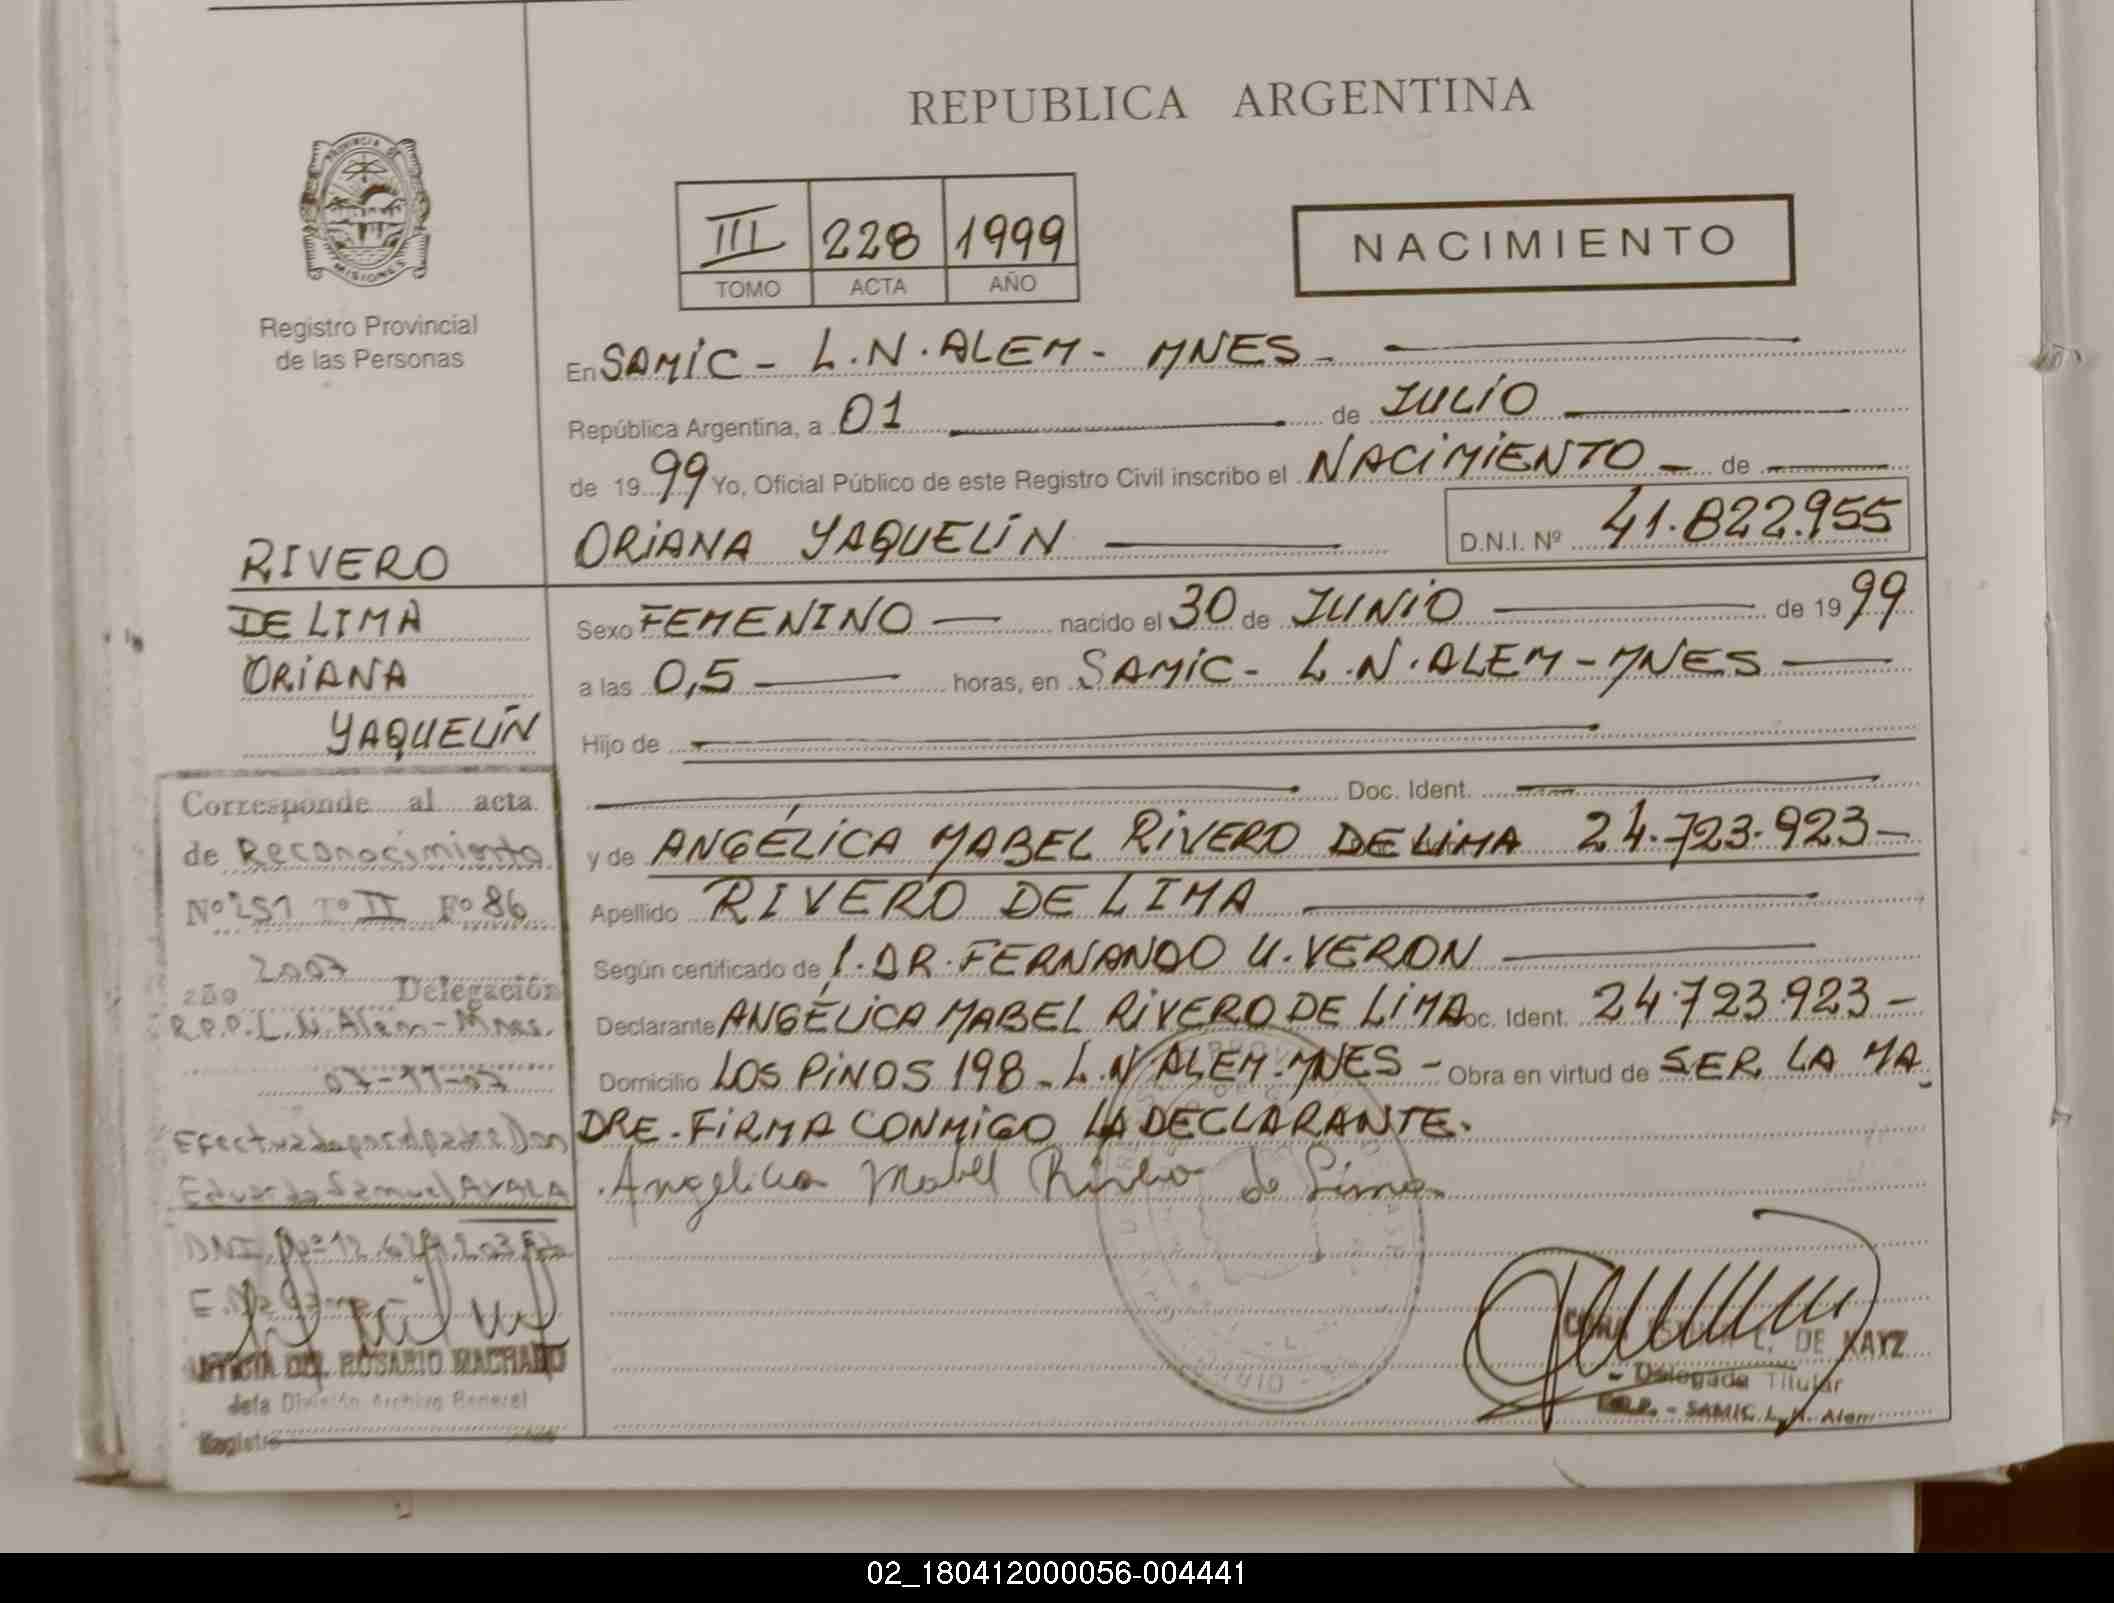 REPUBLICA ARGENTINA
PROVINCIA DE
MISIONES
Registro Provincial
de las Personas
III 228 1999
TOMO ACTA AÑO
NACIMIENTO
En SAMIC - L.N. ALEM - MNES -
República Argentina, a 01 de JULIO
de 1999 Yo, Oficial Público de este Registro Civil inscribo el NACIMIENTO - de
ORIANA YAQUELÍN D.N.I. Nº 41.822.955
RIVERO
DE LIMA
ORIANA
YAQUELÍN
Sexo FEMENINO nacido el 30 de JUNIO de 1999
a las 0,5 horas, en SAMIC - L.N. ALEM - MNES
Hijo de
Doc. Ident.
y de ANGÉLICA MABEL RIVERO DE LIMA 24.723.923-
Apellido RIVERO DE LIMA
Según certificado de DR. FERNANDO U. VERON
Declarante ANGÉLICA MABEL RIVERO DE LIMA Doc. Ident. 24.723.923-
Domicilio LOS PINOS 198 - L.N ALEM - MNES - Obra en virtud de SER LA MA
DRE - FIRMA CONMIGO LA DECLARANTE.
Angelica Mabel Rivero de Lima
Corresponde al acta
de Reconocimiento
Nº 251 Tº II Fº 86
año 2007 Delegación
R.P.P. L.N. Alem - Mnes.
07-11-07
Efectuada por el padre Don
Eduardo Samuel AYALA
DNI. Nº
DEL ROSARIO MACHADO
Jefa División Archivo General
Registro
DE KAYZ
Delegada Titular
R.P.P. - SAMIC L. N. Alem
02_180412000056-004441